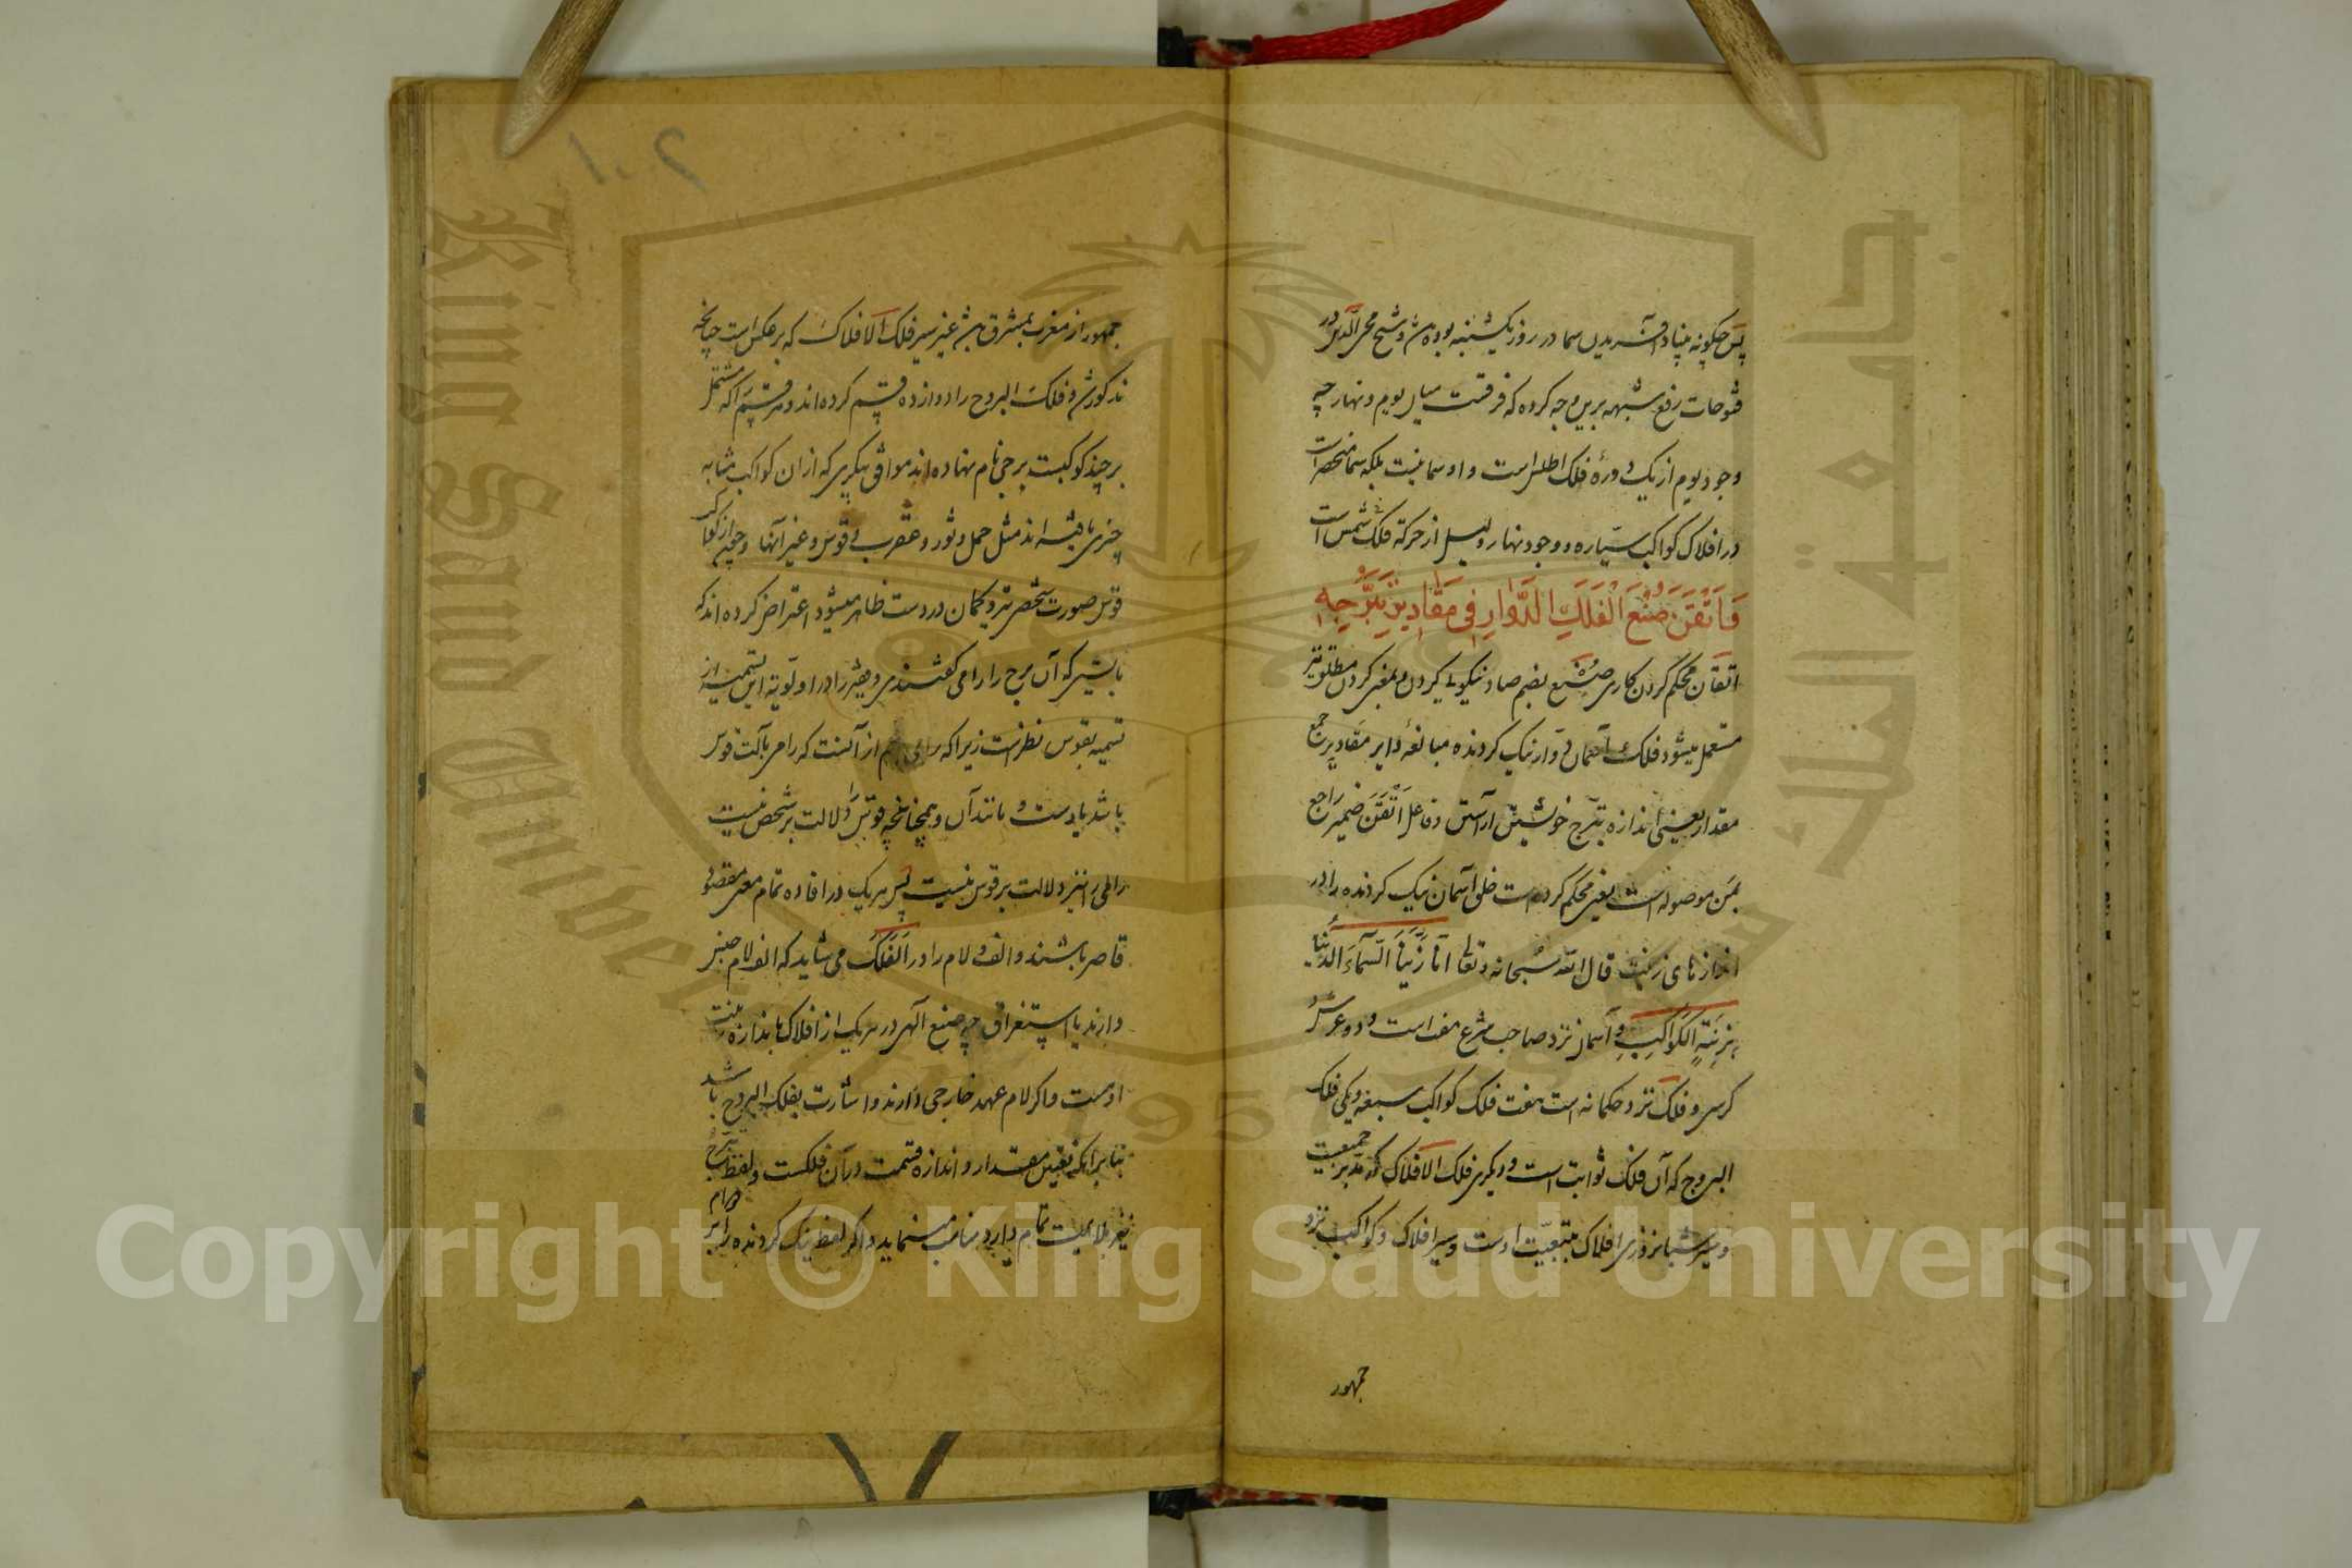 پس چگونه بنیاد آفریدن سما در روز یکشنبه بوده باشد و شیخ محی الدین در
فتوحات رفع شبهه برین وجه کرده که فرقست میان یوم و نهار چه
وجود یوم از یک دوره فلک اطلس است و او سما نیست بلکه سما منحصر است
در افلاک کواکب سیاره و وجود نهار و لیل از حرکة فلک شمس است
فَاَتْقَنَ صُنْعَ الْفَلَكِ الدَّوَّارِ فِي مَقَادِيرِ تَبَرُّجِهِ
اتقان محکم کردن کاری صُنْع بضم صاد نیکویی کردن و بمعنی کردن مطلق نیز
مستعمل میشود فلک آسمان دوّار نیک گردنده مبالغهٔ دایر مقادیر جمع
مقدار یعنی اندازه تبرّج خویشتن آراستن و فاعل اَتْقَنَ ضمیر راجع
بمَن موصوله است یعنی محکم کرده است خلق آسمان نیک گردنده را در
اندازهای زینت قال الله سبحانه وتعالی انّا زَيَّنَّا السَّمَآءَ الدُّنْيَا
بِزِينَةٍ الْكَوَاكِبِ و آسمان نزد صاحب شرع هفت است و دو عرش و
کرسی و فلک نزد حکما نه است هفت فلک کواکب سبعه و یکی فلک
البروج که آن فلک ثوابت است و دیگری فلک الافلاک که مدبر جمیعست
و سیر شبانروزی افلاک بتبعیّت اوست و سیر افلاک و کواکب نزد
جمهور
۱۰۲
جمهور از مغرب بمشرق باشد غیر سیر فلک الافلاک که برعکس است چنانچه
مذکور شد و فلک البروج را دوازده قسم کرده اند و هر قسم را که مشتمل
بر چند کوکبست برجی نام نهاده اند موافق پیکری که از ان کواکب مشابه
چیزی یافته اند مثل حمل و ثور و عقرب و قوس و غیر آنها و چون از کواکب
قوس صورت شخصی تیر و کمان در دست ظاهر میشود اعتراض کرده اند که
بایستی که آن برج را رامی گفتندی و در اولویة این تسمیه از
تسمیه بقوس نظر است زیرا که رامی اعم از آنست که رامی بآلت قوس
باشد یا دست و مانند آن و همچنانچه قوس را دلالت بر شخص نیست
رامی را نیز دلالت بر قوس نیست پس هر یک در افاده تمام معنی مقصود
قاصر باشند و الف و لام را در اَلْفَلَك می شاید که الف لام جنس
دارند یا استغراق چه صنع الهی در هر یک از افلاک باندازه زینت
اوست و اگر لام عهد خارجی دارند و اشارت بفلک البروج باشد
بنابر انکه تعیین مقدار و اندازه قسمت در آن فلکست و لفظ تبرّج
نیز ملایمت تمام دارد مناسب مینماید و اگر لفظ نیک گردنده را بر